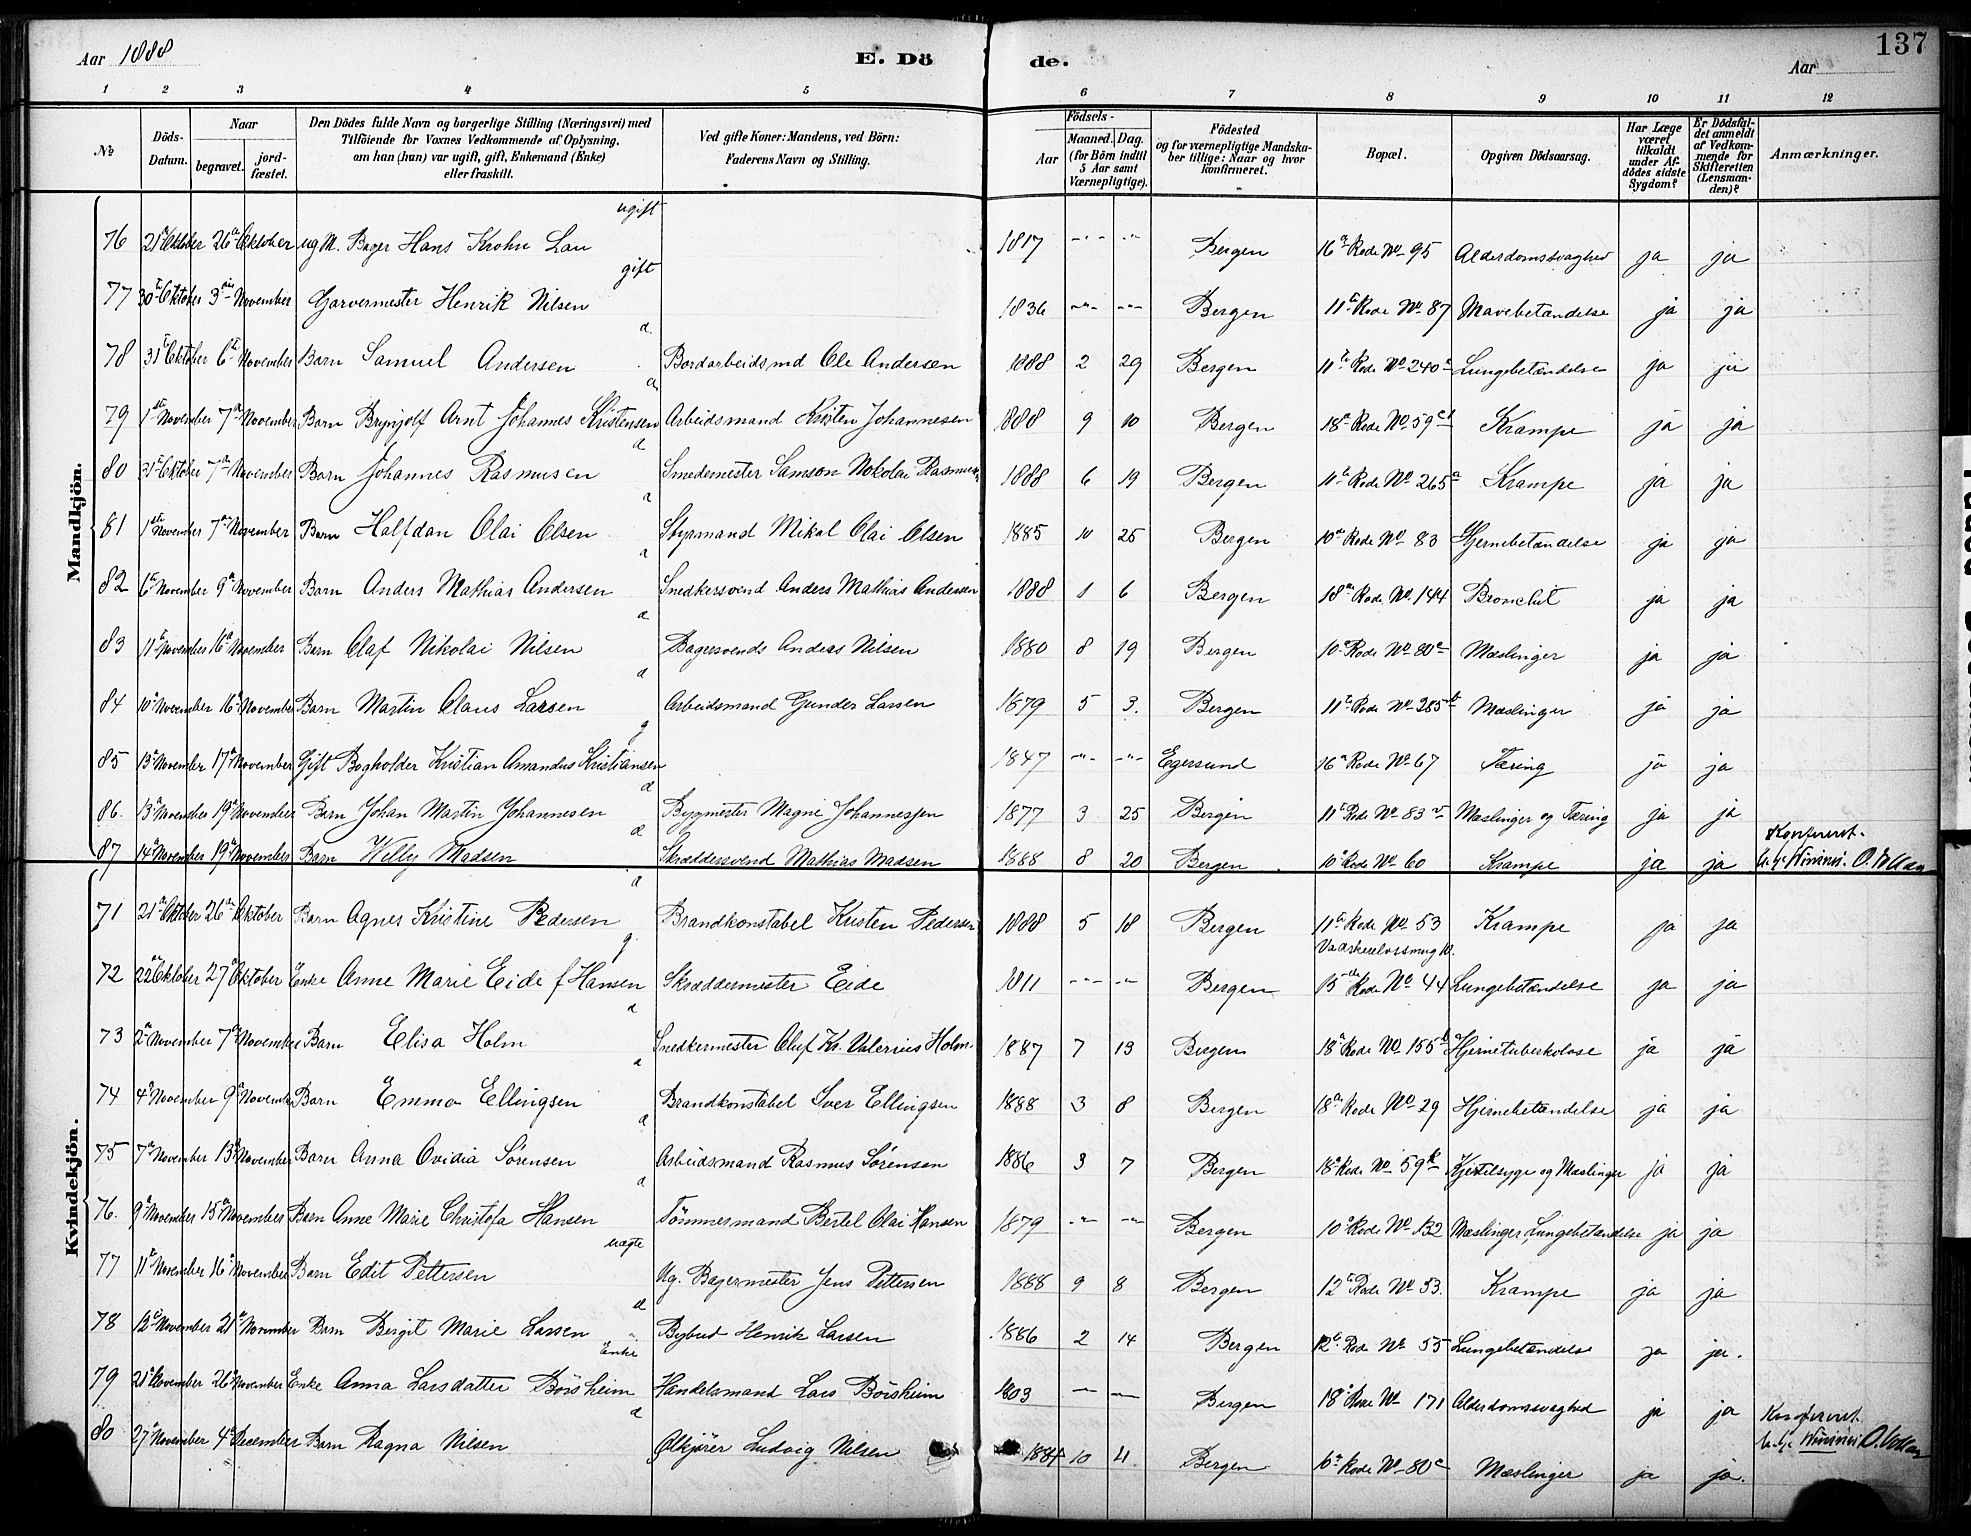 Aar 1888 E. Dö de. Aar 137
1 2 3 4 5 6 7 8 9 10 11 12
№ Döds-Datum. Naar begravet. jord-fæstet. Den Dödes fulde Navn og borgerlige Stilling (Næringsvei) med Tilföiende for Voxnes Vedkommende af Oplysning, om han (hun) var ugift, gift, Enkemand (Enke) eller fraskilt. Ved gifte Koner: Mandens, ved Börn: Faderens Navn og Stilling. Födsels- Aar Maaned. Dag. (for Börn indtil 5 Aar samt Værnepligtige). Födested og for værnepligtige Mandskaber tillige: Naar og hvor konfirmeret. Bopæl. Opgiven Dödsaarsag. Har Læge været tilkaldt under Afdödes sidste Sygdom? Er Dödsfaldet anmeldt af Vedkommende for Skifteretten (Lensmanden)? Anmærkninger.
Mandkjön.
ugift
76 21 Oktober 26 Oktober ug M. Bager Hans Krohn Lau 1817 Bergen 16 Rode No 95 Alderdomssvaghed ja ja
gift
77 30 Oktober 3 November Garvermester Henrik Nilsen 1836 Bergen 11 Rode No 87 Mavebetændelse ja ja
78 31 Oktober 6 November Barn Samuel Andersen Bordarbeidsmd Ole Andersen 1888 2 29 Bergen 11 Rode No 240 Lungebetændelse ja ja
79 1 November 7 November Barn Brynjolf Arnt Johannes Kristensen Arbeidsmand Kristen Johannesen 1888 9 10 Bergen 18 Rode No 59 Krampe ja ja
80 31 Oktober 7 November Barn Johannes Rasmusen Smedemester Samson Nokolai Rasmusen 1888 6 19 Bergen 11 Rode No 265 Krampe ja ja
81 1 November 7 November Barn Halfdan Olai Olsen Styrmand Mikal Olai Olsen 1885 10 25 Bergen 10 Rode No 83 Hjernebetændelse ja ja
82 6 November 9 November Barn Anders Mathias Andersen Snedkersvend Anders Mathias Andersen 1888 1 6 Bergen 18 Rode No 144 Bronchit ja ja
83 11 November 16 November Barn Olaf Nikolai Nilsen Bagersvends Andeas Nilsen 1880 8 19 Bergen 10 Rode No 80 Mæslinger ja ja
84 10 November 16 November Barn Martin Claus Larsen Arbeidsmand Gunder Larsen 1879 5 3. Bergen 11 Rode No 285 Mæslinger ja ja
85 13 November 17 November Gift Bogholder Kristian Amandus Kristiansen 1847 Egersund 16 Rode No 67 Tæring ja ja
86. 13 November 19 November Barn Johan Martin Johannesen Bygmester Magne Johannessen 1877 3 25 Bergen 11 Rode No 83 Mæslinger og Tæring ja ja
87 14 November 19 November Barn Willy Madsen Skræddersvend Mathias Madsen 1888 8 20 Bergen 10 Rode No 60 Krampe ja ja Konfereret.
Kvindekjön.
71 21 Oktober 26 Oktober Barn Agnes Kristine Pedersen Brandkonstabel Kristen Pedersen 1888 5 18 Bergen 11 Rode No 53 Krampe ja ja
72 22 Oktober 27 Oktober Enke Anne Marie Eide f Hansen Skræddermester Eide 1811 Bergen 15 Rode No 44 Lungebetændelse ja ja
73 2 November 7 November Barn Elisa Holm Snedkermester Oluf Kr. Valerius Holm. 1887 7 13 Bergen 18 Rode No 155 Hjernetuberkolose ja ja
74 4 November 9 November Barn Emma Ellingsen Brandkonstabel Iver Ellingsen 1888 3 8 Bergen 18 Rode No 29 Hjernebetændelse ja ja
75 7 November 13 November Barn Anna Ovidia Sørensen Arbeidsmand Rasmus Sørensen 1886 3 7 Bergen 18 Rode No 59 Kjertelsyge og Mæslinger ja ja
76. 9 November 15 November Barn Anne Marie Christofa Hansen Tømmermand Bertel Olai Hansen 1879 Bergen 10 Rode No 132 Mæslinger, Lungebetændelse ja ja
uægte
77 11 November 16 November Barn Edit Pettersen Ug. Bagermester Jens Pettersen 1888 9 8 Bergen 12 Rode No 53. Krampe ja ja
78 12 November 21 November Barn Bergit Marie Larsen Bybud Henrik Larsen 1886 2 14 Bergen 12 Rode No 55 Lungebetændelse ja ja.
Enke
79 21 November 26 November Enke Anna Larsdatter Börsheim Handelsmand Lars Börsheim 1803 Bergen 18 Rode No 171 Alderdomssvaghed ja ja
80 27 November 4 December Barn Ragna Nilsen Ølkjører Ludvig Nilsen 1884 10 21 Bergen 10 Rode No 80 Mæslinger ja ja. Konfereret.